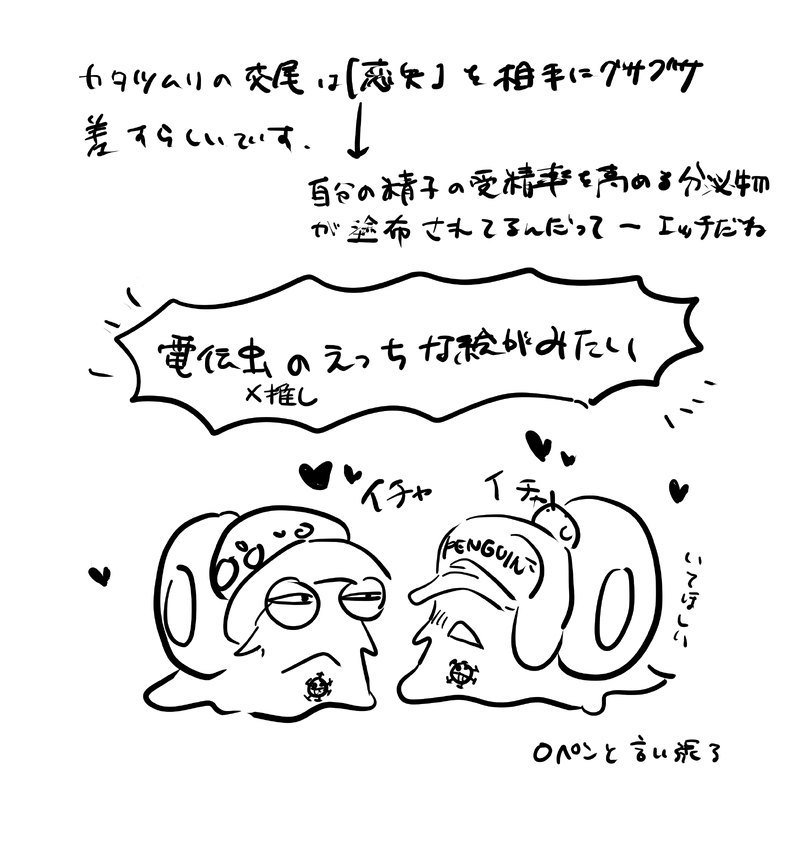 カタツムリの交尾は「恋矢」を相手にグサグサ
差すらしいです.
自分の精子の受精率を高める分泌物
が塗布されてるんだって ー エッチだね
電伝虫のえっちな絵がみたい
×推し
イチャ イチャ
PENGUIN
いてほしい
○ペンと言い張る